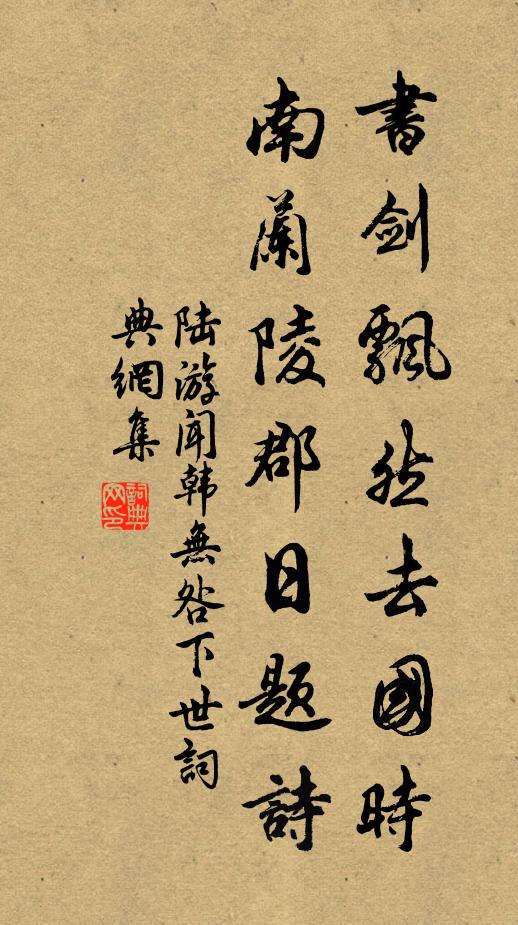 書劍飄然去國時
南蘭陵郡日題詩
陸游聞韓無咎下世詞
典網集
詞典
网印